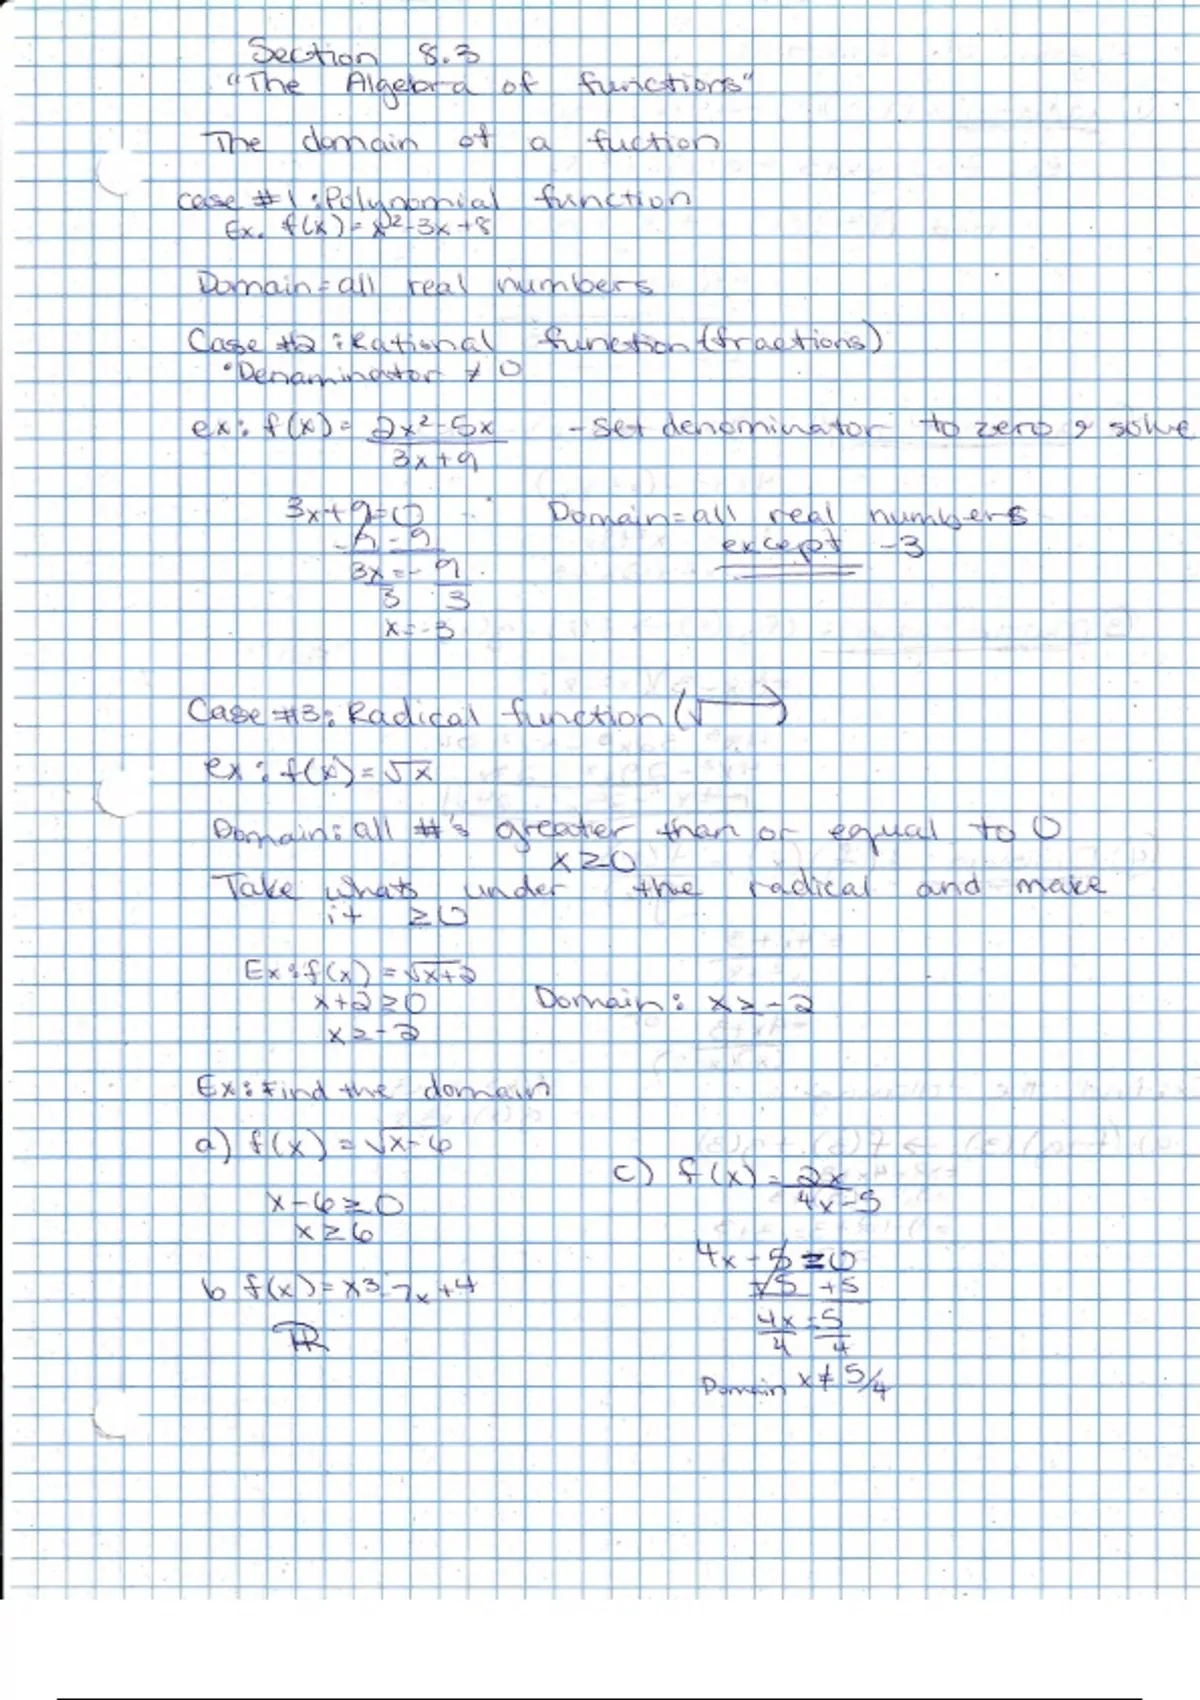 Section 8.3
"The Algebra of functions"
The domain of a fuction
case #1: Polynomial function
Ex. f(x) = x²-3x+8
Domain = all real numbers
Case #2: Rational function (fractions)
• Denaminator ≠ 0
ex: f(x) = 2x²-5x - set denominator to zero & solve
3x+9
3x+9=0 Domain = all real numbers
-9 -9 except -3
3x = -9
3 3
x=-3
Case #3: Radical function (√ )
ex: f(x) = √x
Domain: all #'s greater than or equal to 0
x≥0
Take whats under the radical and make
it ≥0
Ex: f(x) = √x+2
x+2≥0 Domain: x≥-2
x≥-2
Ex: Find the domain
a) f(x) = √x-6
x-6≥0
x≥6
b f(x) = x3-7x+4
ℝ
c) f(x) = 2x
4x-5
4x-5=0
+5 +5
4x=5
4 4
Domain x≠5/4